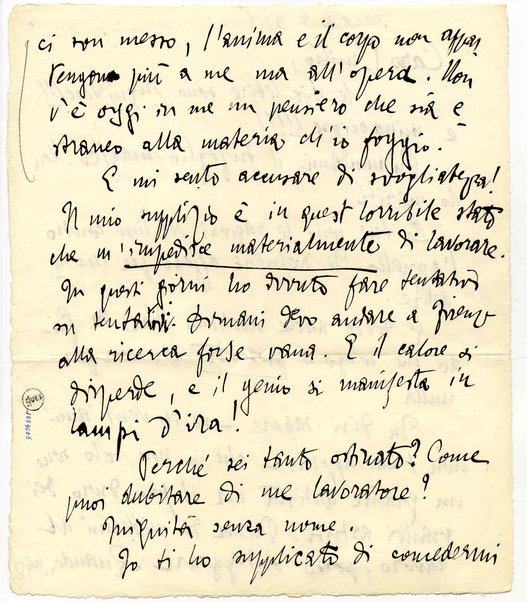 ci son messo, l'anima e il corpo non appar
tengono più a me ma all'opera. Non
v'è oggi in me un pensiero che sia e
straneo alla materia ch'io foggio.
E mi sento accusare di svogliatezza!
Il mio supplizio è in quest'orribile stato
che m'impedisce materialmente di lavorare.
In questi giorni ho dovuto fare tentativi
su tentativi. Domani devo andare a Firenze
alla ricerca forse vana. E il calore si
disperde, e il genio si manifesta in
lampi d'ira!
Perché sei tanto ostinato? Come
puoi dubitare di me lavoratore?
Iniquità senza nome.
Io ti ho supplicato di concedermi